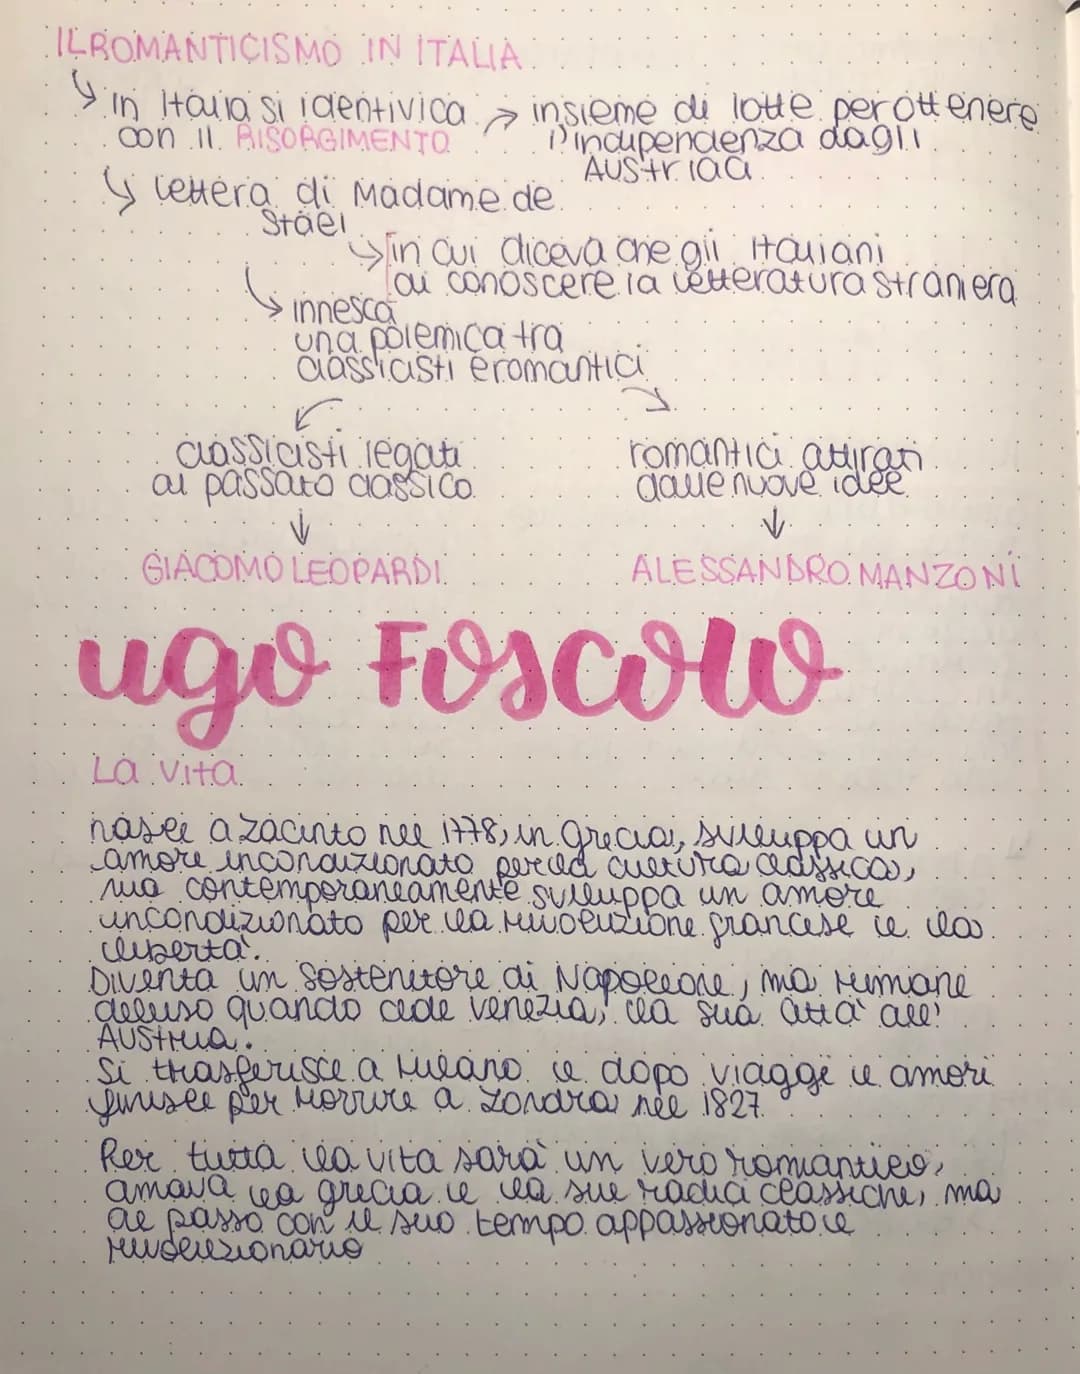 IL ROMANTICISMO IN ITALIA
in Italia si identivica
con il RISORGIMENTO
insieme di lotte per ottenere
l'indipendenza dagli
Austriaci
lettera di Madame de
Stäel
in cui diceva che gli italiani
di conoscere la letteratura straniera
innesca
una polemica tra
classicisti e romantici
classicisti legati
al passato classico
romantici attirati
dalle nuove idee
GIACOMO LEOPARDI
ALESSANDRO MANZONI
ugo Foscolo
La vita
nasce a Zacinto nel 1778, in grecia, sviluppa un
amore incondizionato per la cultura classica,
ma contemporaneamente sviluppa un amore
incondizionato per la rivoluzione francese e la
libertà.
Diventa un sostenitore di Napoleone, ma rimane
deluso quando cede venezia, la sua città all'
AUSTria.
Si trasferisce a Milano e dopo viaggi e amori
finisce per morire a Londra nel 1827
Per tutta la vita sarà un vero romantico,
amava la grecia e la sue radici classiche, ma
al passo con il suo tempo appassionato e
rivoluzionario